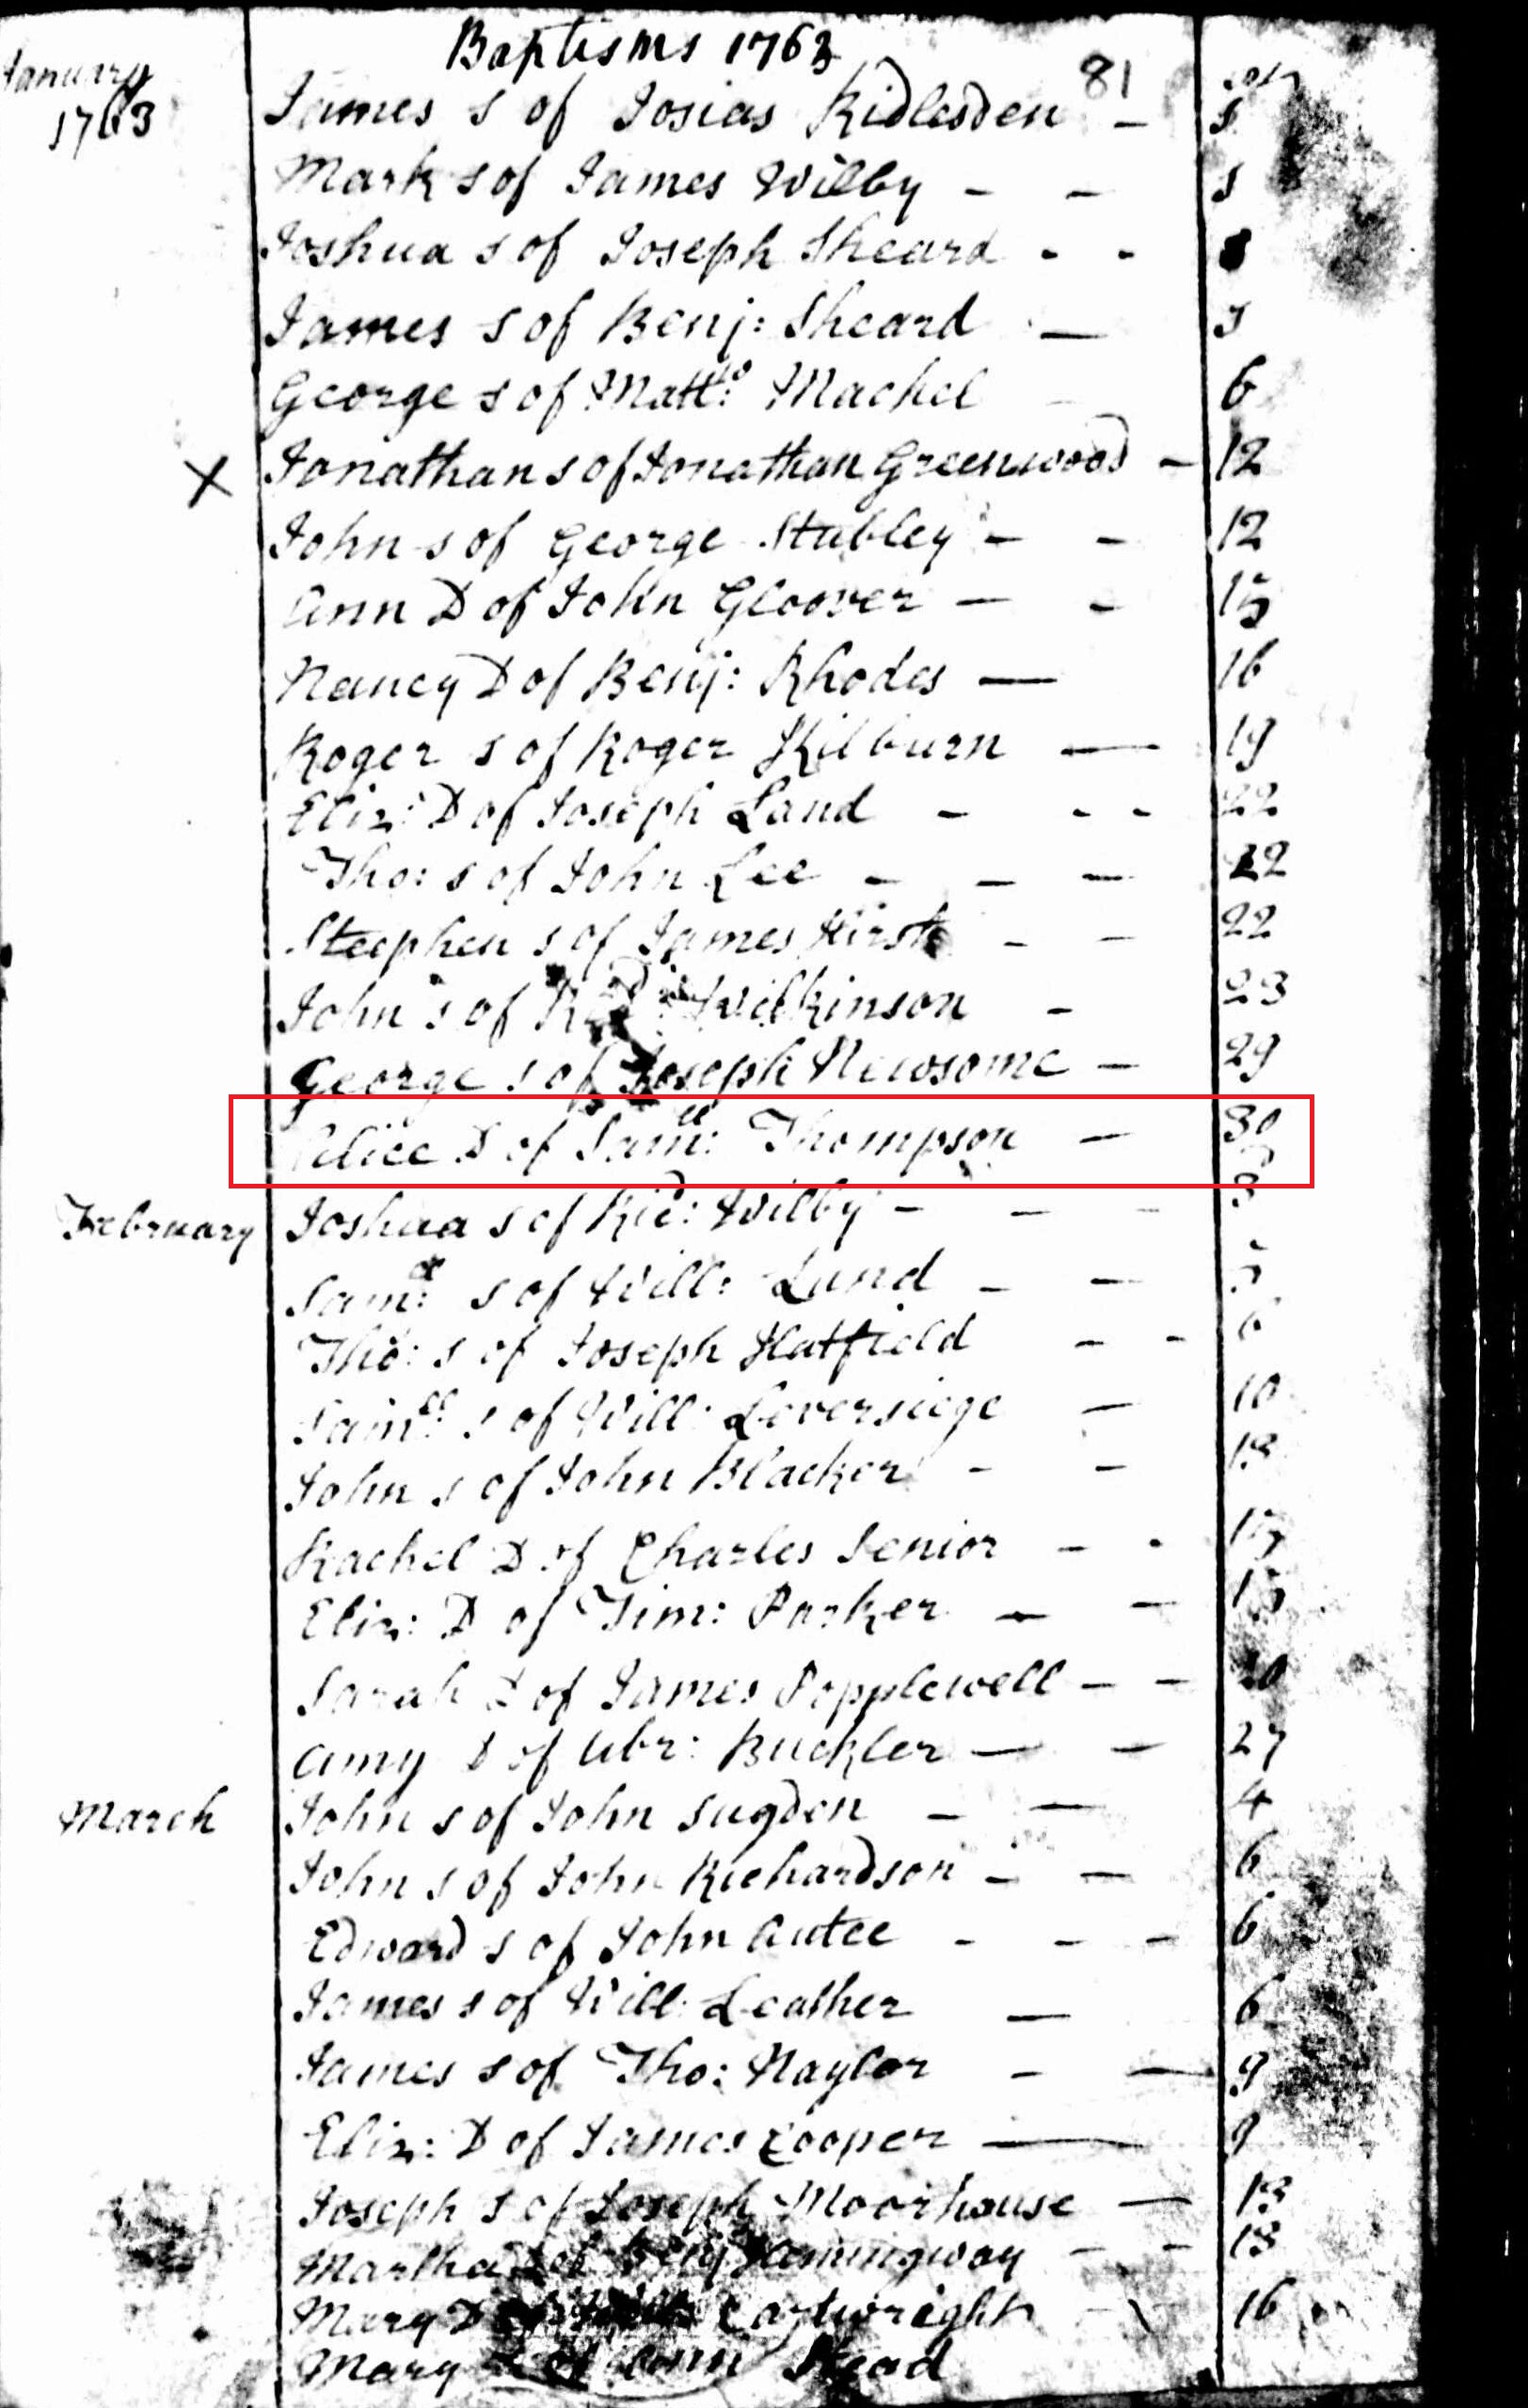 Baptisms 1763
81
January
1763
James s of Josias Ridlesden - 1
Mark s of James Wilby - -
Joshua s of Joseph Sheard - -
James s of Benj: Sheard —
George s of Matt: Machel 6
X Jonathan s of Jonathan Greenwood - 12
John s of George Stubley - - 12
Ann D of John Gloover - - 15
Nancy D of Benj: Rhodes — 16
Roger s of Roger Kilburn — 19
Eliz: D of Joseph Land - - - 22
Tho: s of John Lee - - - 22
Steephen s of James Hirst - - 22
John s of Wilkinson - 23
George s of Joseph Newsome - 29
Alice D of Samll: Thompson - 30
February Joshua s of Ric: Wilby - - - 3
Samll: s of Will: Lund - - 5
Tho: s of Joseph Hatfield - - 6
Samll: s of Will: Leversiege - 10
John s of John Blacker - - 13
Rachel D of Charles Senior - -
Eliz: D of Tim: Parker - - 15
Sarah D of James Popplewell - - 20
Amy D of Abr: Buckler - - 27
March John s of John Sugden - — 4
John s of John Richardson - - 6
Edward s of John Autee - - - 6
James s of Will: Leather — 6
James s of Tho: Naylor - — 9
Eliz: D of James Cooper — 9
Joseph s of Joseph Moorhouse — 13
Martha D of Benj: Hemingway - - 13
Mary D Cartwright - 16
Mary D of Ann Stead